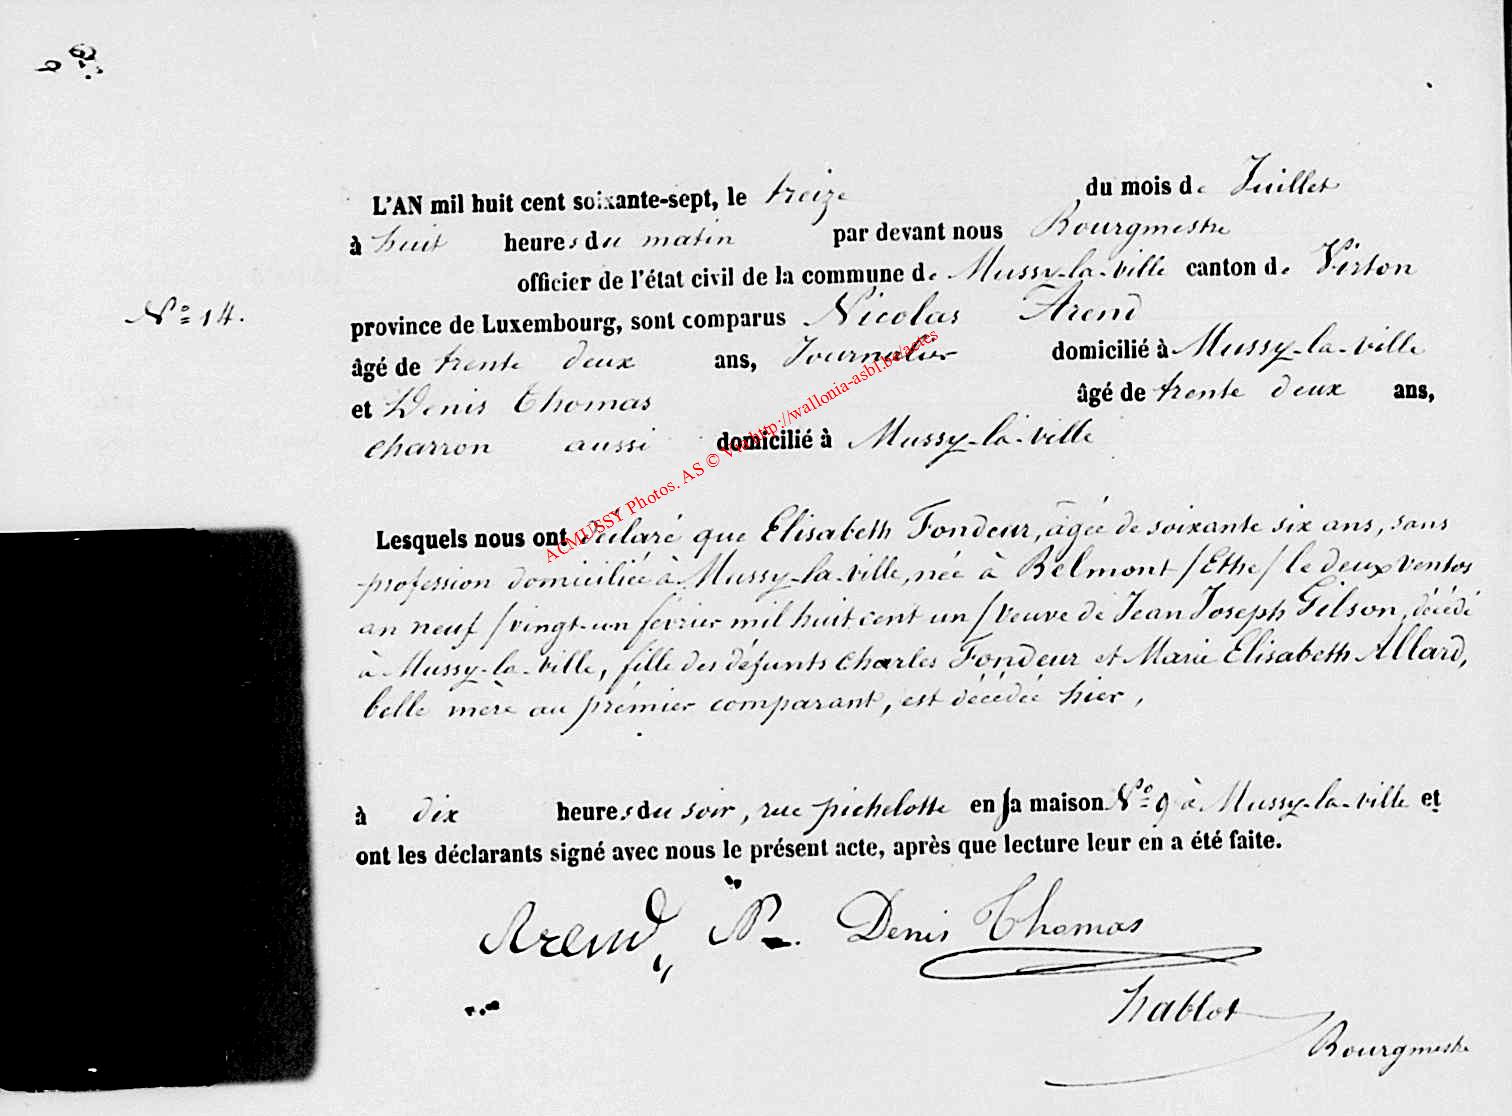 L'AN mil huit cent soixante-sept, le treize du mois de Juillet
à huit heures du matin par devant nous Bourgmestre
officier de l'état civil de la commune de Mussy-la-ville canton de Virton
N° 14.
province de Luxembourg, sont comparus Nicolas Arend
âgé de trente deux ans, Journalier domicilié à Mussy-la-ville
et Denis Thomas âgé de trente deux ans,
charron aussi domicilié à Mussy-la-ville
ACMUSSY Photos. AS © http://wallonia-asbl.be/actes
Lesquels nous ont déclaré que Elisabeth Fondeur, âgée de soixante six ans, sans
profession domiciliée à Mussy-la-ville, née à Belmont /Ethe/ le deux ventos
an neuf /vingt-un février mil huit cent un/ veuve de Jean Joseph Gilson, décédé
à Mussy-la-ville, fille des défunts Charles Fondeur et Marie Elisabeth Allard,
belle mère au prémier comparant, est décédée hier,
à dix heures du soir, rue pichelotte en sa maison N° 9 à Mussy-la-ville et
ont les déclarants signé avec nous le présent acte, après que lecture leur en a été faite.
Arend N. Denis Thomas
hablot
Bourgmestre